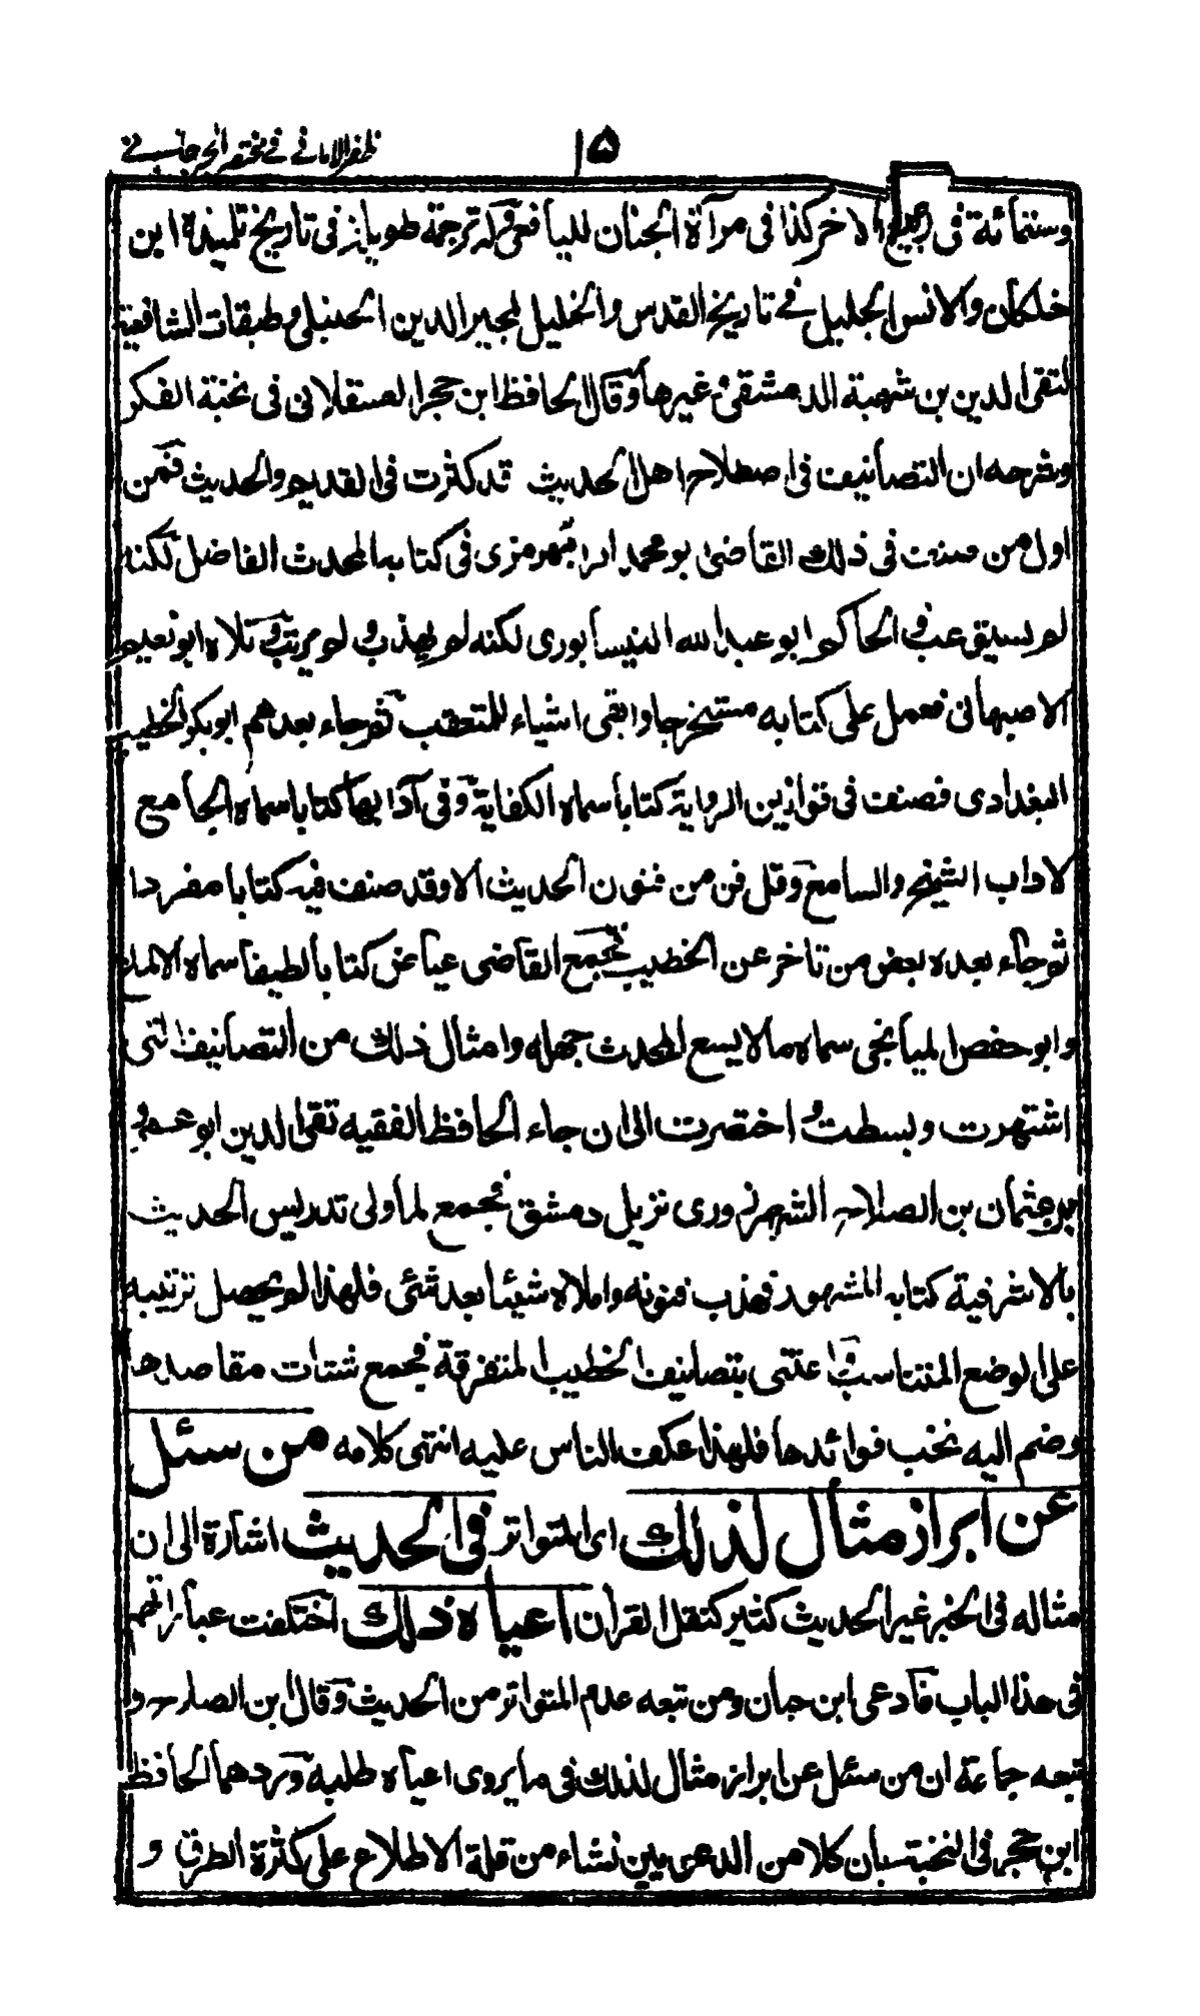 ظفر الامانى فى مختصر الجرجانى
١٥
وستمائة فى ربيع الاخر كذا فى مرآة الجنان لليافعى وله ترجمة طويلة فى تاريخ تلميذه ابن
خلكان والانس الجليل فى تاريخ القدس والخليل لمجير الدين الحنبلى وطبقات الشافعية
لتقى الدين بن شهبة الدمشقى وغيرها وقال الحافظ ابن حجر العسقلانى فى نخبة الفكر
وشرحه ان التصانيف فى اصطلاح اهل الحديث قد كثرت فى القديم والحديث فمن
اول من صنف فى ذلك القاضى ابو محمد الرامهرمزى فى كتابه المحدث الفاضل لكنه
لم يستوعب والحاكم ابو عبد الله النيسابورى لكنه لم يهذب ولم يرتب وتلاه ابو نعيم
الاصبهانى فعمل على كتابه مستخرجا وابقى اشياء للمتعقب ثم جاء بعدهم ابو بكر الخطيب
البغدادى فصنف فى قوانين الرواية كتابا سماه الكفاية وفى آدابها كتابا سماه الجامع
لاداب الشيخ والسامع وقل فن من فنون الحديث الا وقد صنف فيه كتابا مفردا
ثم جاء بعده بعض من تاخر عن الخطيب فجمع القاضى عياض كتابا لطيفا سماه الالماع
وابو حفص الميانجى سماه ما لا يسع المحدث جهله وامثال ذلك من التصانيف التى
اشتهرت وبسطت واختصرت الى ان جاء الحافظ الفقيه تقى الدين ابو عمرو
بن عثمان بن الصلاح الشهرزورى نزيل دمشق فجمع لما ولى تدريس الحديث
بالاشرفية كتابه المشهور فهذب فنونه واملاه شيئا بعد شئ فلهذا لم يحصل ترتيبه
على الوضع المتناسب واعتنى بتصانيف الخطيب المتفرقة فجمع شتات مقاصدها
وضم اليه نخب فوائدها فلهذا عكف الناس عليه انتهى كلامه من سئل
عن ابراز مثال لذلك اى المتواتر فى الحديث اشارة الى ان
مثاله فى الخبر غير الحديث كثير كنقل القران اعياه ذلك اختلفت عباراتهم
فى هذا الباب فادعى ابن حبان ومن تبعه عدم المتواتر من الحديث وقال ابن الصلاح و
تبعه جماعة ان من سئل عن ابراز مثال لذلك فى ما يروى اعياه طلبه وردهما الحافظ
ابن حجر فى النخبة بان كلا من الدعويين نشاء من قلة الاطلاع على كثرة الطرق و